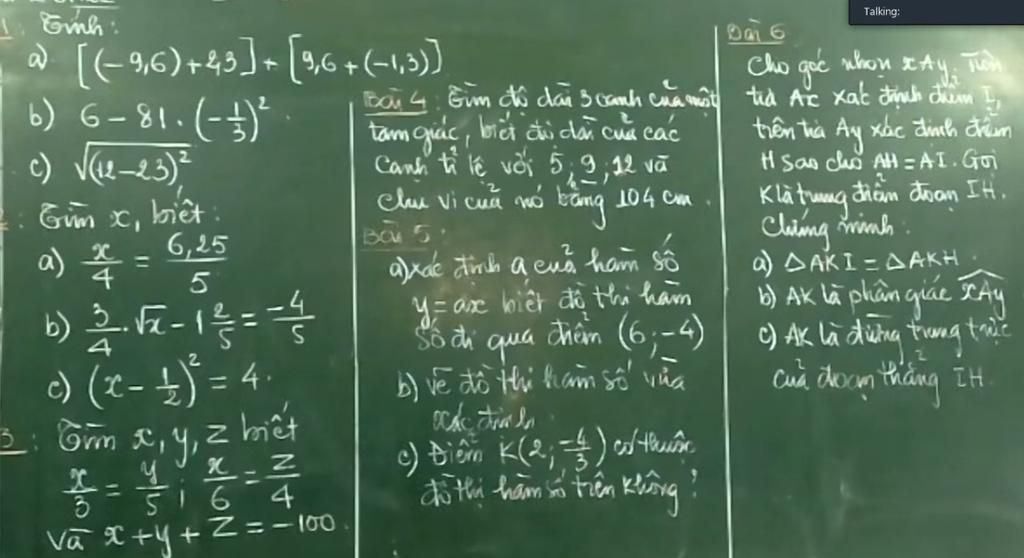 Talking:
1. Tính:
a) [(-9,6)+2,3]+[9,6+(-1,3)]
b) 6-81.(-1/3)²
c) √(12-23)²
2. Tìm x, biết:
a) x/4 = 6,25/5
b) 3/4.√x - 1 2/5 = -4/5
c) (x-1/2)² = 4.
3: Tìm x, y, z biết
x/3 = y/5; x/6 = z/4
và x+y+z=-100
Bài 4: Tìm độ dài 3 cạnh của một
tam giác, biết độ dài của các
cạnh tỉ lệ với 5; 9; 12 và
chu vi của nó bằng 104 cm.
Bài 5:
a) xác định a của hàm số
y=ax biết đồ thị hàm
số đi qua điểm (6;-4)
b) vẽ đồ thị hàm số vừa
xác định.
c) Điểm K(2; -4/3) có thuộc
đồ thị hàm số trên không?
Bài 6
Cho góc nhọn xAy. Trên
tia Ax xác định điểm I,
trên tia Ay xác định điểm
H sao cho AH=AI. Gọi
K là trung điểm đoạn IH.
Chứng minh:
a) △AKI=△AKH.
b) AK là phân giác xAy
c) AK là đường trung trực
của đoạn thẳng IH